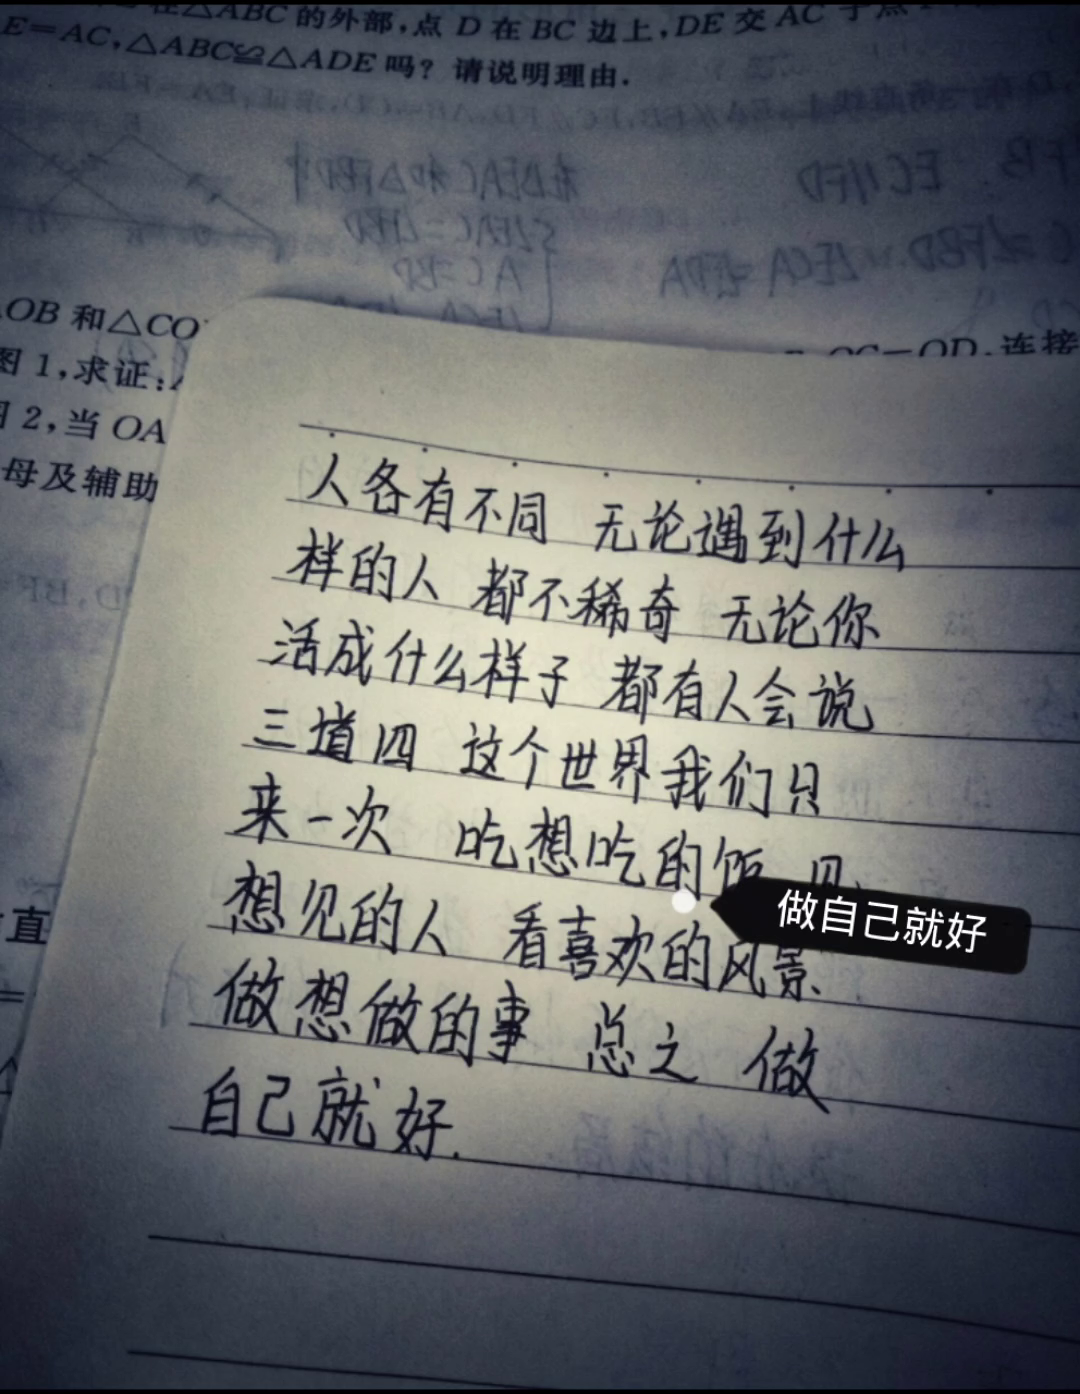 在△ABC 的外部,点 D 在 BC 边上,DE 交 AC 于点
E=AC,△ABC≌△ADE 吗? 请说明理由.
OB 和△CO
OC=OD,连接
图 1,求证:
2,当 OA
母及辅助
人各有不同 无论遇到什么
样的人 都不稀奇 无论你
活成什么样子 都有人会说
三道四 这个世界我们只
来一次 吃想吃的饭 见
想见的人 看喜欢的风景
做自己就好
做想做的事 总之 做
自己就好.
直